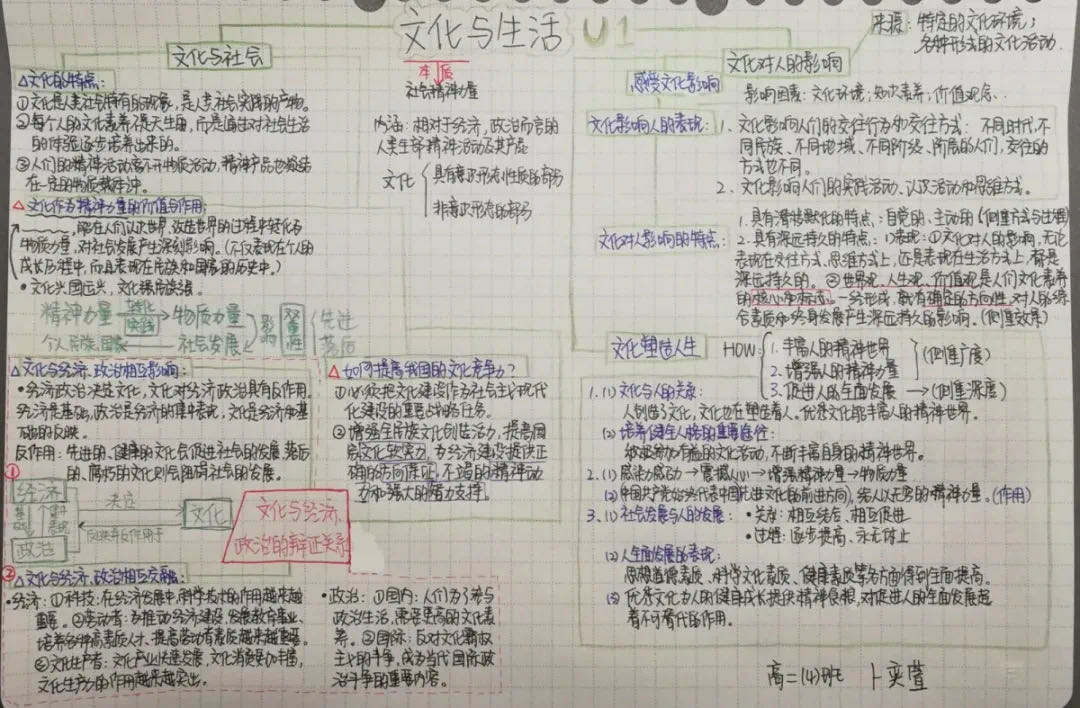 文化与生活 U1
本质
社会精神力量
内涵：相对于经济，政治而言的
人类全部精神活动及其产品
文化
具有意识形态性质的部分
非意识形态的部分
文化与社会
△文化的特点：
①文化是人类社会特有的现象，是人类社会实践的产物。
②每个人的文化素养不是天生的，而是通过对社会生活
的体验逐步培养出来的。
③人们的精神活动离不开物质活动，精神产品也凝结
在一定的物质载体中。
△文化作为精神力量的价值与作用：
能在人们认识世界、改造世界的过程中转化为
物质力量，对社会发展产生深刻影响。（不仅表现在个人的
成长历程中，而且表现在民族和国家的历史中。）
• 文化兴国运兴，文化强民族强。
精神力量 转化 实践 物质力量 影响 双重性 先进
个人民族国家 社会发展 落后
△文化与经济、政治相互影响：
• 经济政治决定文化，文化对经济政治具有反作用。
经济是基础，政治是经济的集中表现，文化是经济和基
础的反映。
反作用：先进的、健康的文化会促进社会的发展，落后
的、腐朽的文化则会阻碍社会的发展。
①
经济
基础 集中表现
政治
决定
反映并反作用于
文化
文化与经济、
政治的辩证关系
△如何提高我国的文化竞争力？
①必须把文化建设作为社会主义现代
化建设的重要战略任务。
②增强全民族文化创造活力，提高国
家文化软实力，为经济建设提供正
确的方向保证，不竭的精神动
力和强大的智力支撑。
②
△文化与经济、政治相互交融：
• 经济：①科技：在经济发展中，科学技术的作用越来越
重要。②劳动者：为推动经济建设，发展教育事业、
培养各种高素质人才、提高劳动者素质越来越重要。
③文化生产者：文化产业快速发展，文化消费更加丰富，
文化生产力的作用越来越突出。
• 政治：①国内：人们为了参与
政治生活，需要更高的文化素
养。②国际：反对文化霸权
主义的斗争，成为当代国际政
治斗争的重要内容。
文化对人的影响
来源：特定的文化环境；
各种形式的文化活动.
感受文化影响
影响因素：文化环境；知识素养；价值观念.
文化影响人的表现：
1. 文化影响人们的交往行为和交往方式：不同时代、不
同民族、不同地域、不同阶级、阶层的人们，交往的
方式也不同。
2. 文化影响人们的实践活动、认识活动和思维方式。
文化对人影响的特点：
1. 具有潜移默化的特点：自觉的、主动的（侧重方式与过程）
2. 具有深远持久的特点：1)表现：①文化对人的影响，无论
表现在交往方式、思维方式上，还是表现在生活方式上，都是
深远持久的。②世界观、人生观、价值观是人们文化素养
的核心和标志。一经形成，就有确定的方向性，对人的综
合素质和终身发展产生深远持久的影响。（侧重效果）
文化塑造人生
HOW：
1. 丰富人的精神世界
2. 增强人的精神力量
（侧重广度）
3. 促进人的全面发展 →（侧重深度）
1. (1) 文化与人的关系：
人创造了文化，文化也在塑造着人。优秀文化能丰富人的精神世界。
(2) 培养健全人格的重要途径：
积极参加有益的文化活动，不断丰富自身的精神世界。
2. (1) 感染力感动→震撼人心→增强精神力量→物质力量
(2) 中国共产党始终代表中国先进文化的前进方向，给人以无穷的精神力量。（作用）
3. (1) 社会发展与人的发展：• 关系：相互结合、相互促进
• 过程：逐步提高、永无休止
(2) 人全面发展的表现：
思想道德素质、科学文化素质、健康素质等各方面得到全面提高。
(3) 优秀文化为人的健康成长提供精神食粮，对促进人的全面发展起
着不可替代的作用。
高二(4)班 卜奕萱